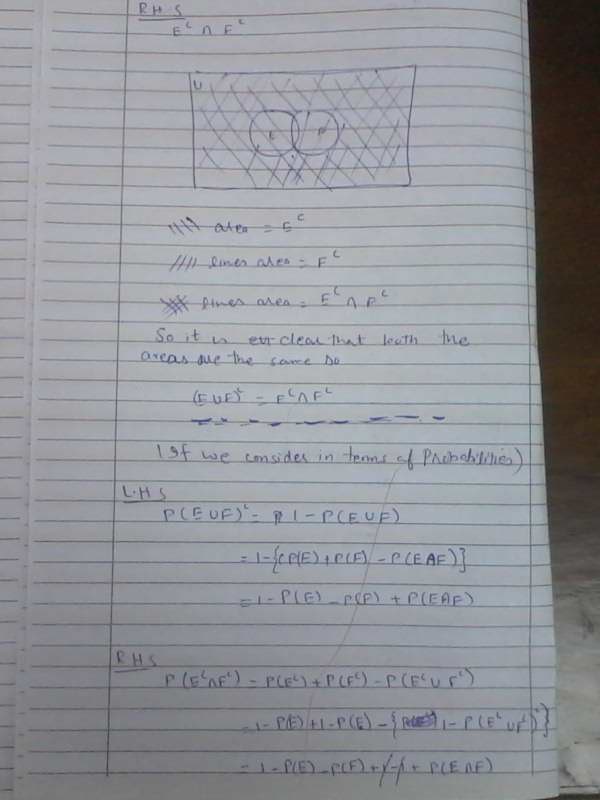 RHS
Eᶜ ∩ Fᶜ
U
E F
//// area = Eᶜ
//// lines area = Fᶜ
lines area = Eᶜ ∩ Fᶜ
So it is clear that both the
areas are the same so
(E∪F)ᶜ = Eᶜ∩Fᶜ
(If we consider in terms of Probabilities)
L.H.S
P(E∪F)ᶜ = 1 - P(E∪F)
= 1-{P(E)+P(F) - P(E∩F)}
= 1-P(E) - P(F) + P(E∩F)
RHS
P(Eᶜ∩Fᶜ) = P(Eᶜ) + P(Fᶜ) - P(Eᶜ∪Fᶜ)
= 1-P(E)+1-P(E) - {1-P(Eᶜ∪Fᶜ)ᶜ}
= 1-P(E) - P(F) + 1 - 1 + P(E∩F)